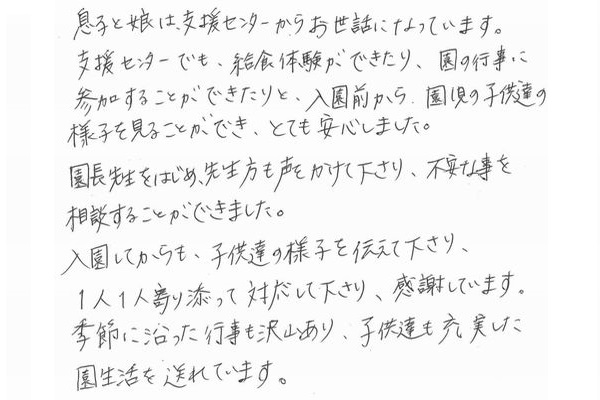 息子と娘は、支援センターからお世話になっています。
支援センターでも、給食体験ができたり、園の行事に
参加することができたりと、入園前から、園児の子供達の
様子を見ることができ、とても安心しました。
園長先生をはじめ、先生方も声をかけて下さり、不安な事を
相談することができました。
入園してからも、子供達の様子を伝えて下さり、
1人1人寄り添って対応して下さり、感謝しています。
季節に沿った行事も沢山あり、子供達も充実した
園生活を送れています。